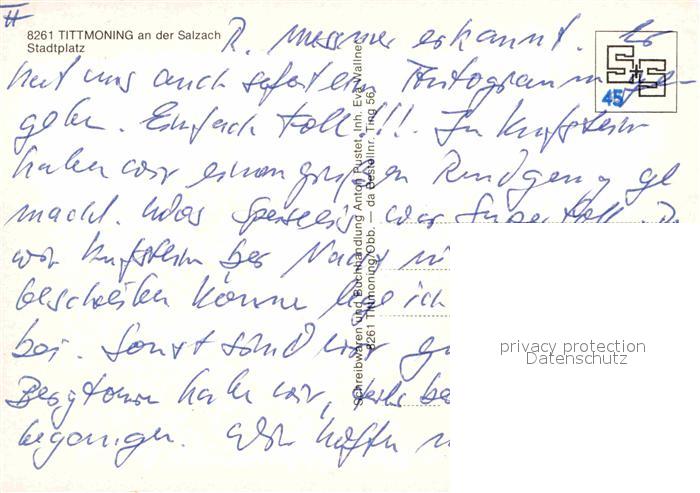 II
8261 TITTMONING an der Salzach
Stadtplatz
R. Messner erkannt. Er
hat uns auch sofort ein Autogramm ge-
geben. Einfach toll!!! In Kufstein
haben wir einen großen Rundgang ge
macht. Das Speiseeis war Super toll. D
wir Kufstein bei Nacht ni
beschreiben können lege ich
bei. Sonst sind wir gu
Bergtouren haben wir, be
begangen. Wir hoffen
Schreibwaren und Buchhandlung Anton Pustet, Inh. Eva Wallner
8261 Tittmoning/Obb. — da Bestellnr. Ting 56
S+S
45
privacy protection
Datenschutz